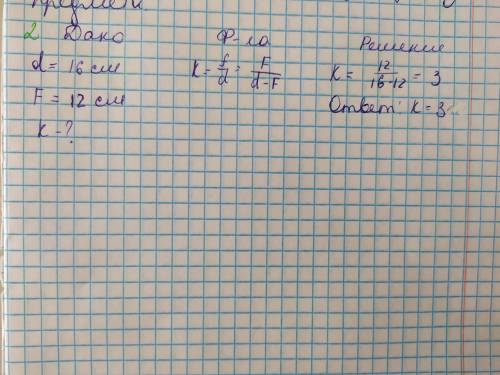 предмети
2 Дано
d = 16 см
F = 12 см
k - ?
Ф-ла
K = f/d = F/(d-F)
Решение
K = 12/(16-12) = 3
Ответ: K = 3